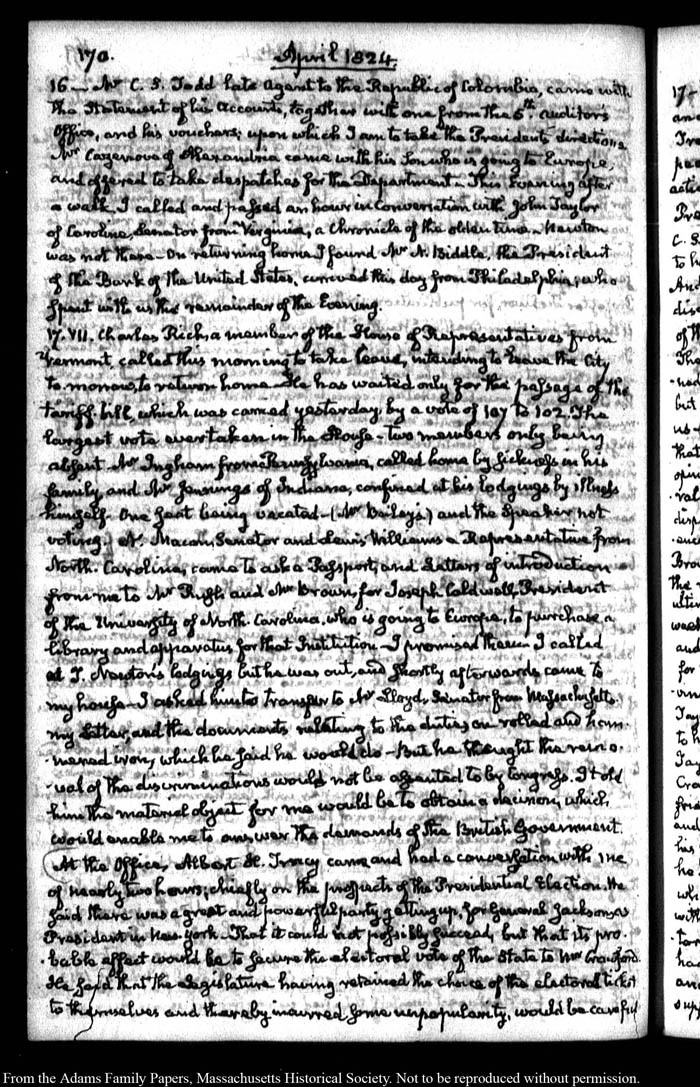 170. April 1824.
16— Mr C. S. Todd late Agent to the Republic of Colombia, came with
the Statement of his Accounts, together with one from the 5th. Auditor's
Office, and his vouchers; upon which I am to take the President's directions
Mr Cazenove of Alexandria came with his Son who is going to Europe,
and offered to take despatches for the Department— This Evening after
a walk I called and passed an hour in conversation with John Taylor
of Caroline, Senator from Virginia, a Chronicle of the olden time— Newton
was not there— On returning home I found Mr N. Biddle, the President
of the Bank of the United States, arrived this day from Philadelphia; who
spent with us the remainder of the Evening.
17. VII. Charles Rich, a member of the House of Representatives from
Vermont, called this morning to take leave, intending to leave the City
to-morrow, to return home— He has waited only for the passage of the
tariff-bill, which was carried yesterday, by a vote of 107 to 102. The
largest vote ever taken in the House— two members only being
absent— Mr Ingham from Pennsylvania, called home by sickness in his
family, and Mr Jennings of Indiana, confined at his lodgings by illness
himself— One seat being vacated— (Mr Bailey's) and the Speaker not
voting. N. Macon, Senator and Lewis Williams a Representative from
North-Carolina, came to ask a Passport, and Letters of introduction
from me to Mr Rush and Mr Brown, for Joseph Caldwell, President
of the University of North-Carolina, who is going to Europe, to purchase a
library and apparatus for that Institution— I promised them— I called
at T. Newton's lodgings but he was out, and shortly afterwards came to
my house— I asked him to transfer to Mr Lloyd, Senator from Massachusetts
my Letter, and the documents relating to the duties on rolled and ham-
-mered iron, which he said he would do— But he thought the remo-
-val of the discriminations would not be assented to by Congress. I told
him the material object for me would be to obtain a decision, which
would enable me to answer the demands of the British Government.
At the Office, Albert H. Tracy came and had a conversation with me
of nearly two hours; chiefly on the prospects of the Presidential Election. He
said there was a great and powerful party getting up, for General Jackson as
President in New-York— That it could not possibly succeed, but that its pro-
-bable effect would be to secure the electoral vote of the State to Mr Crawford.
He said that the Legislature having retained the choice of the electoral ticket
to themselves and thereby incurred some unpopularity, would be careful
From the Adams Family Papers, Massachusetts Historical Society. Not to be reproduced without permission.